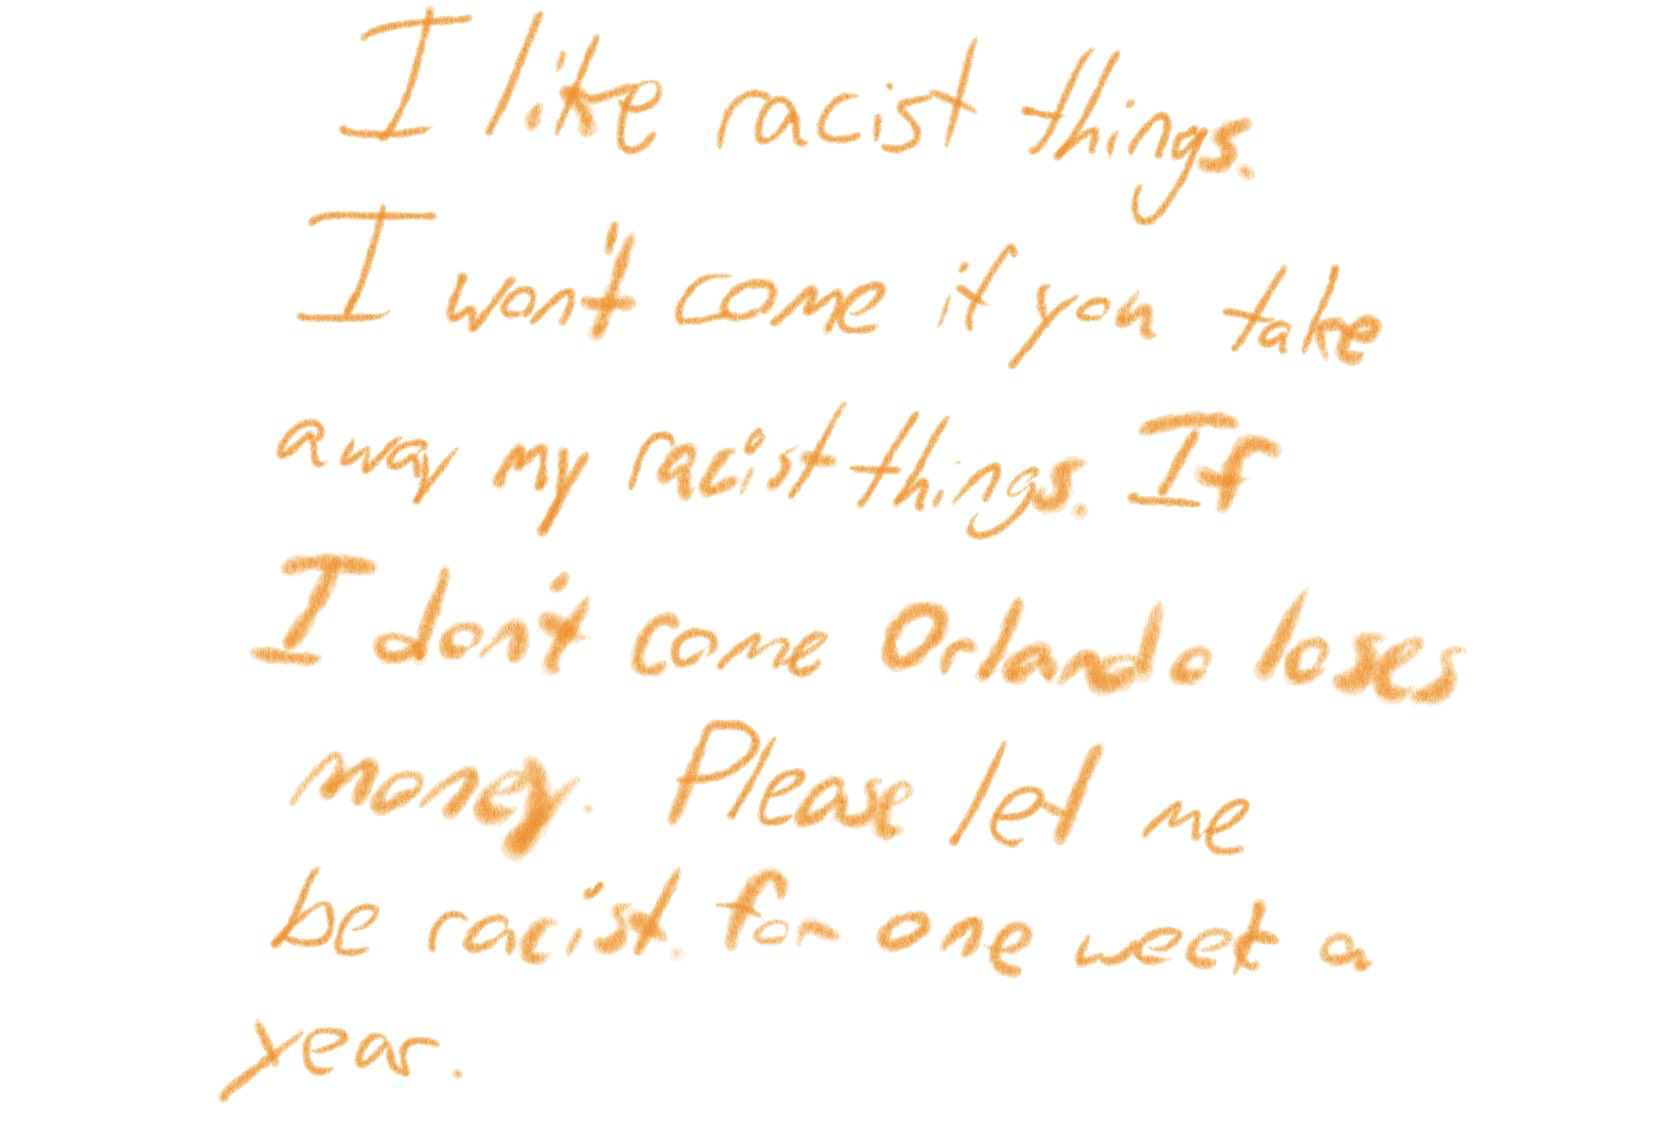 I like racist things.
I won't come if you take
away my racist things. If
I don't come Orlando loses
money. Please let me
be racist. for one week a
year.